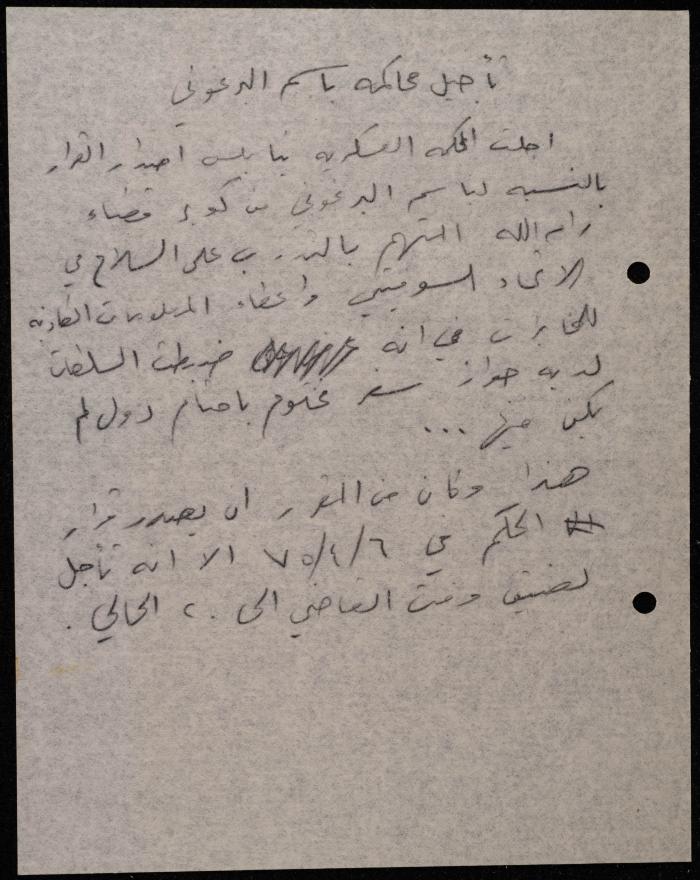 تأجيل محاكمة باسم البرغوثي
اجلت المحكمة العسكرية بنابلس اصدار القرار
بالنسبه لباسم البرغوثي من كوبر قضاء
رام الله المتهم بالتدرب على السلاح في
الاتحاد السوفيتي واعطاء المعلومات الكاذبه
للمخابرات في انه ضبطت السلطات
لديه جواز سفر مختوم باختام دول لم
يكن فيها ...
هذا وكان من المقرر ان يصدر قرار
الحكم في ٧٥/٤/٦ الا انه تأجل
لضيق وقت القاضي الى ٢٠ الحالي .